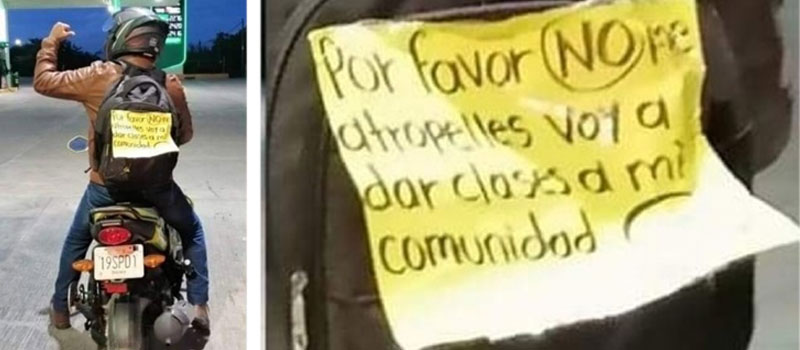 Por favor NO me
atropelles voy a
dar clases a mi
comunidad
19SPD1
Por favor NO me
atropelles voy a
dar clases a mi
comunidad